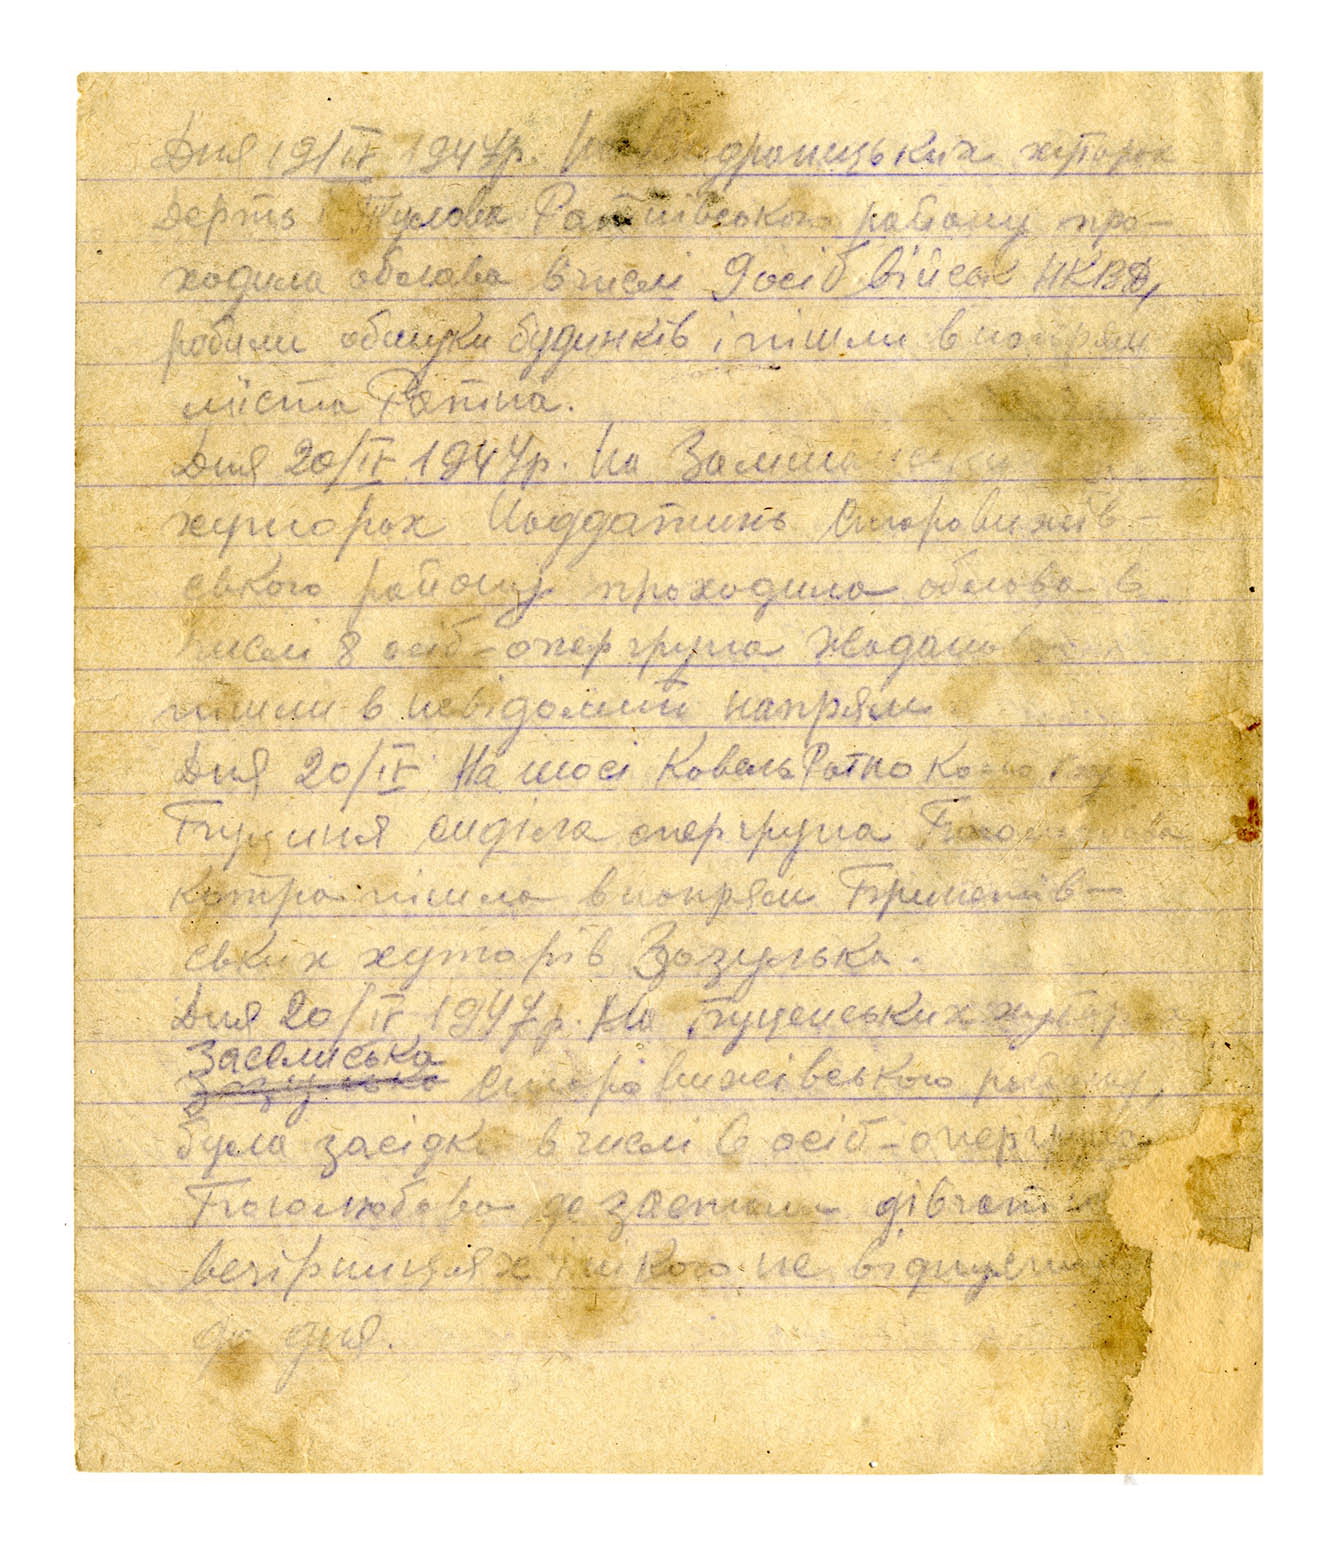 Дня 19/IV 1947р. На дроницьких хуторах
Дерть і Тулова Ратнівського району про-
ходила облава в числі 9 осіб військ НКВД,
робили обшуки будинків і пішли в напрям
міста Ратна.
Дня 20/IV 1947р. На
хуторах Поддатинь Старовижів-
ського району проходила облава в
числі 8 осіб – опергрупа
пішли в невідомий напрям
Дня 20/IV На шосі Ковель Ратно
Буциня сиділа опергрупа
котра пішла в напрям
ських хуторів Зозулька.
Дня 20/IV 1947р. На Буценських хутор
Заселиська
Старовижівського району,
була засідка в числі 6 осіб – опергрупа
Боголюбова де застали дівчат
вечірницях і нікого не відпустили
до дня.